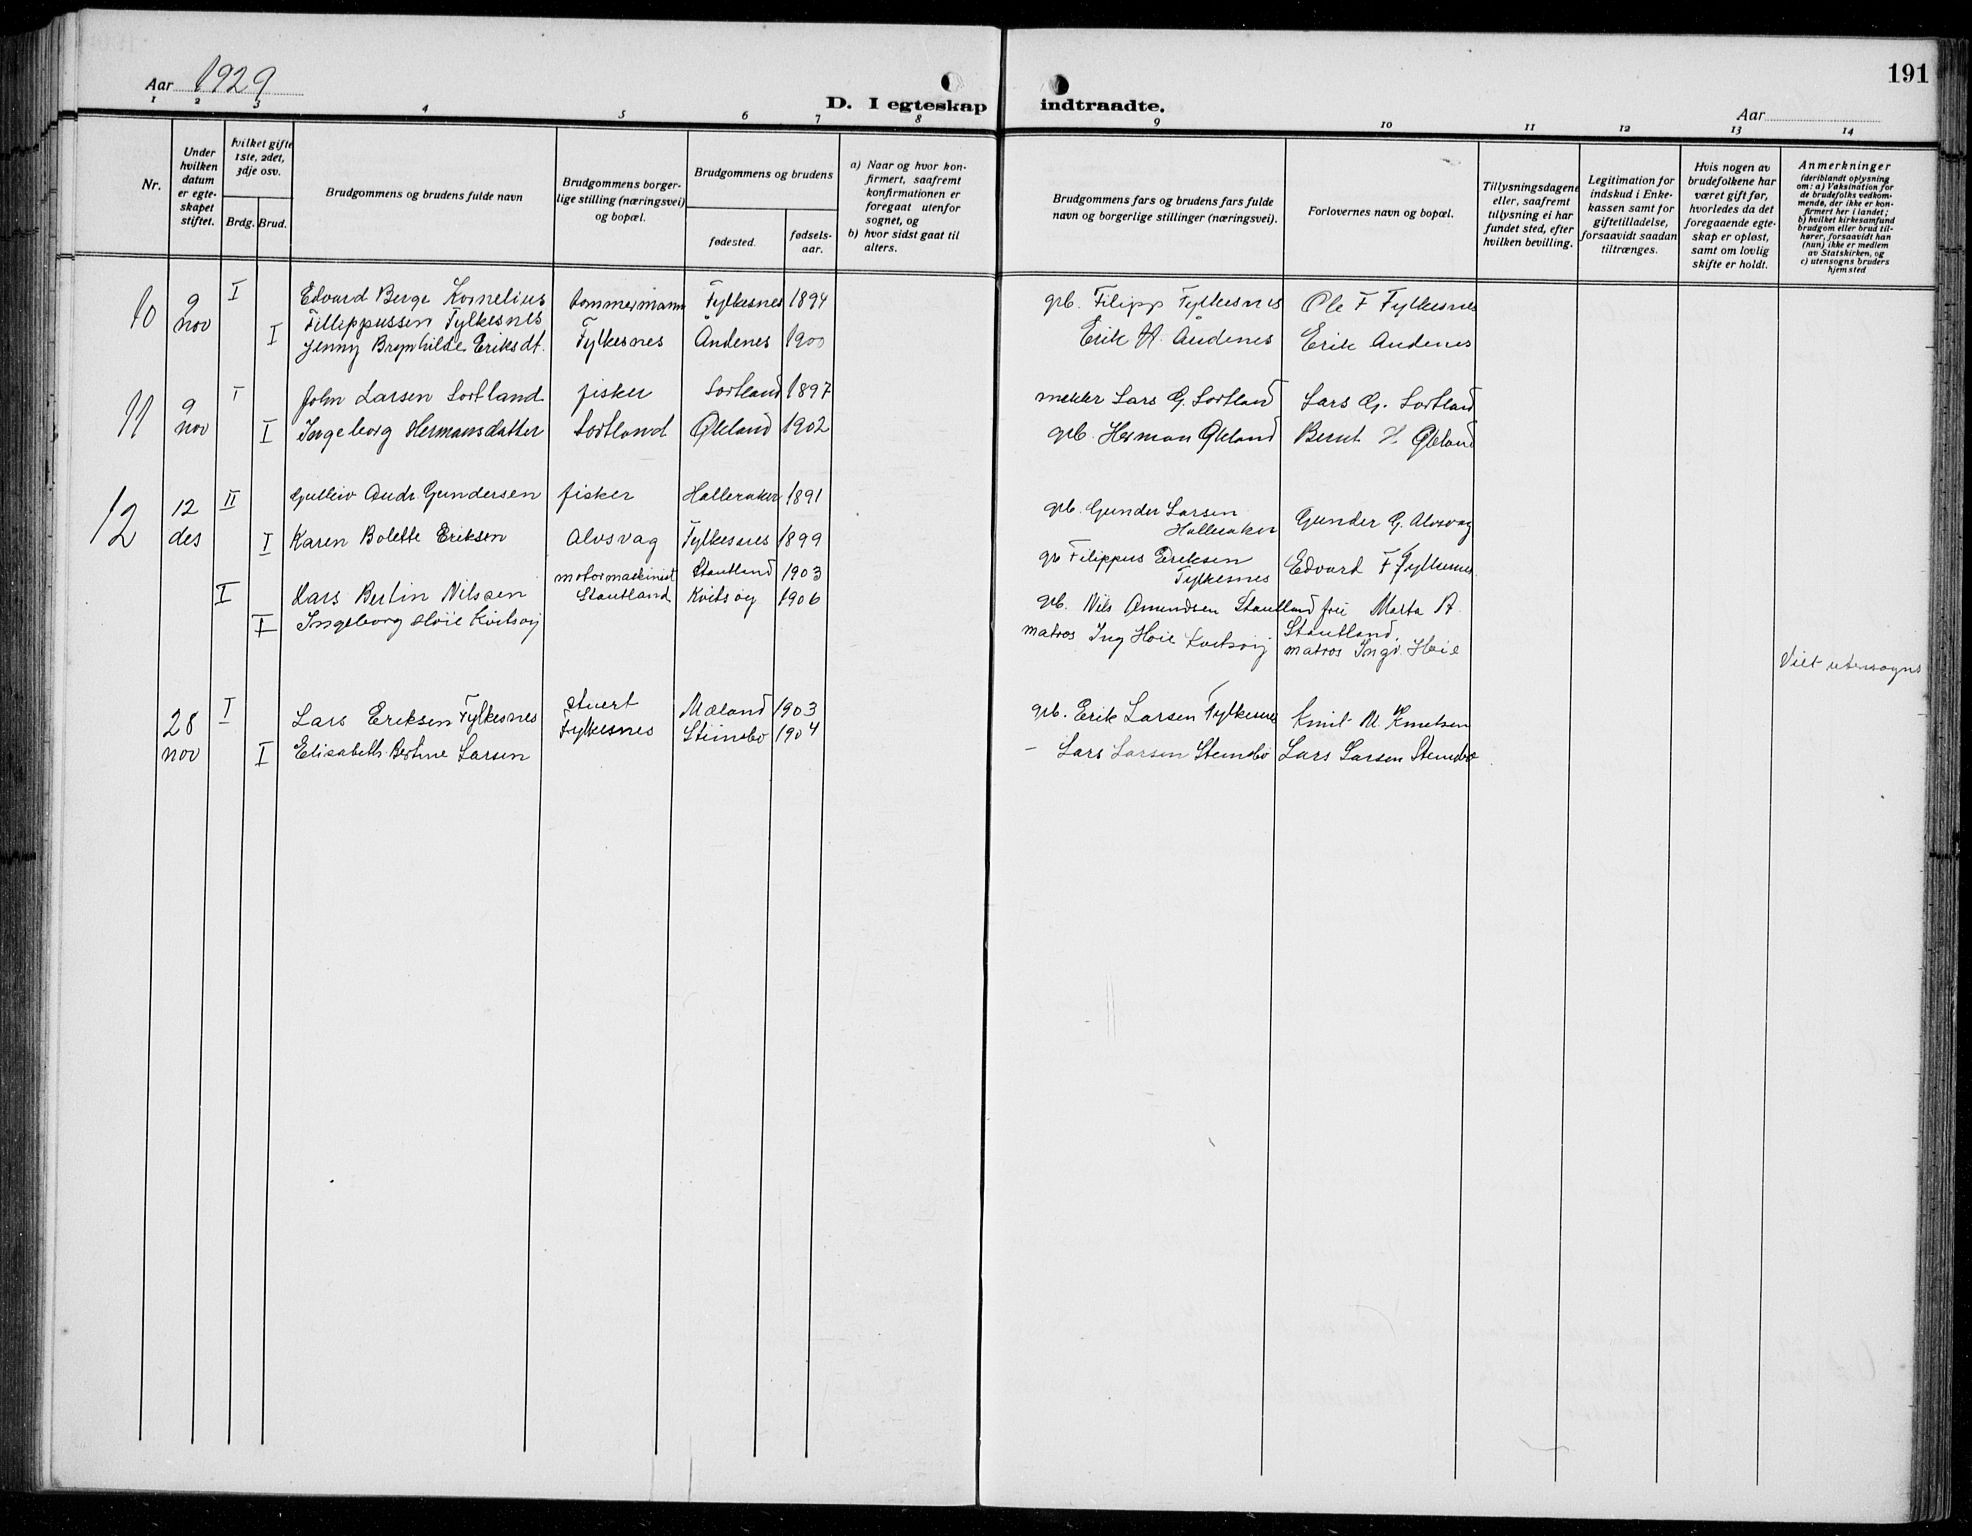 Aar 1929
D. I egteskap indtraadte.
191
Aar
1 2 3 4 5 6 7 8 9 10 11 12 13 14
Nr.
Under hvilken datum er egte-skapet stiftet.
hvilket gifte 1ste, 2det, 3dje osv.
Brdg. Brud.
Brudgommens og brudens fulde navn
Brudgommens borger-lige stilling (næringsvei) og bopæl.
Brudgommens og brudens
fødested.
fødsels-aar.
a) Naar og hvor kon-firmert, saafremt konfirmationen er foregaat utenfor sognet, og
b) hvor sidst gaat til alters.
Brudgommens fars og brudens fars fulde navn og borgerlige stillinger (næringsvei).
Forlovernes navn og bopæl.
Tillysningsdagene eller, saafremt tillysning ei har fundet sted, efter hvilken bevilling.
Legitimation for indskud i Enke-kassen samt for giftetilladelse, forsaavidt saadan tiltrænges.
Hvis nogen av brudefolkene har været gift før, hvorledes da det foregaaende egte-skap er opløst, samt om lovlig skifte er holdt.
Anmerkninger
(deriblandt oplysning om: a) Vaksination for de brudefolks vedkom-mende, der ikke er kon-firmert her i landet; b) hvilket kirkesamfund brudgom eller brud til-hører, forsaavidt han (hun) ikke er medlem av Statskirken, og c) utensogns bruders hjemsted
10 9 nov I Edvard Berge Kornelius tømmermann Fylkesnes 1894 grb. Filipp Fylkesnes Ole F Fylkesnes
Fillippussen Fylkesnes
I Jenny Brynhilde Eriksdt. Fylkesnes Åndenes 1900 Erik H. Åndenes Erik Andenes
11 9 nov I John Larsen Sortland fisker Sortland 1897 mekler Lars G. Sortland Lars G. Sortland
I Ingeborg Hermansdatter Sortland Økland 1902 grb. Herman Økland Bernt H. Økland
12 12 des II Gulleiv Andr. Gundersen fisker Halleraker 1891 grb. Gunder Larsen
Halleraker Gunder G. Alvsvag
I Karen Bolette Eriksen Alvsvag Fylkesnes 1899 gr Filippus Eriksen
Fylkesnes Edvard F Fylkesnes
motormaskinist Stautland 1903
I Lars Bertin Nilssen Stautland Kvitsøy 1906 grb. Nils Amundsen Stautland frú Marta A.
I Ingeborg Høie Kvitsøy matros Ing Høie Kvitsøy Stautland.
matros Ingv. Høie
Viet utensogns
28 nov I Lars Eriksen Fylkesnes stuert Mæland 1903 grb. Erik Larsen Fylkesnes Knut M. Knutsen
Fylkesnes Steinsbø 1904
I Elisabeth Bertine Larsen – Lars Larsen Steinsbø Lars Larsen Steinsbø